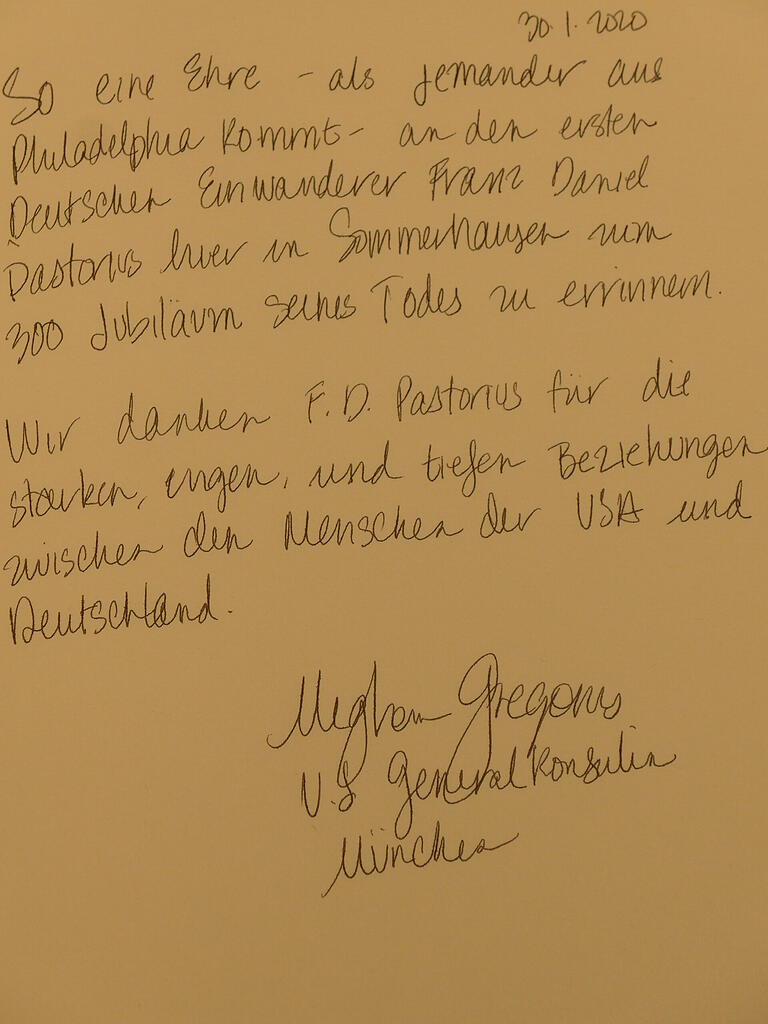 30.1.2020
So eine Ehre - als jemander aus
Philadelphia kommt - an den ersten
Deutschen Einwanderer Franz Daniel
Pastorius hier in Sommerhausen zum
300 Jubiläum seines Todes zu errinnern.
Wir danken F. D. Pastorius für die
starken, engen, und tiefen Beziehungen
zwischen den Menschen der USA und
Deutschland.
Meghan Gregonis
U.S Generalkonsulin
München